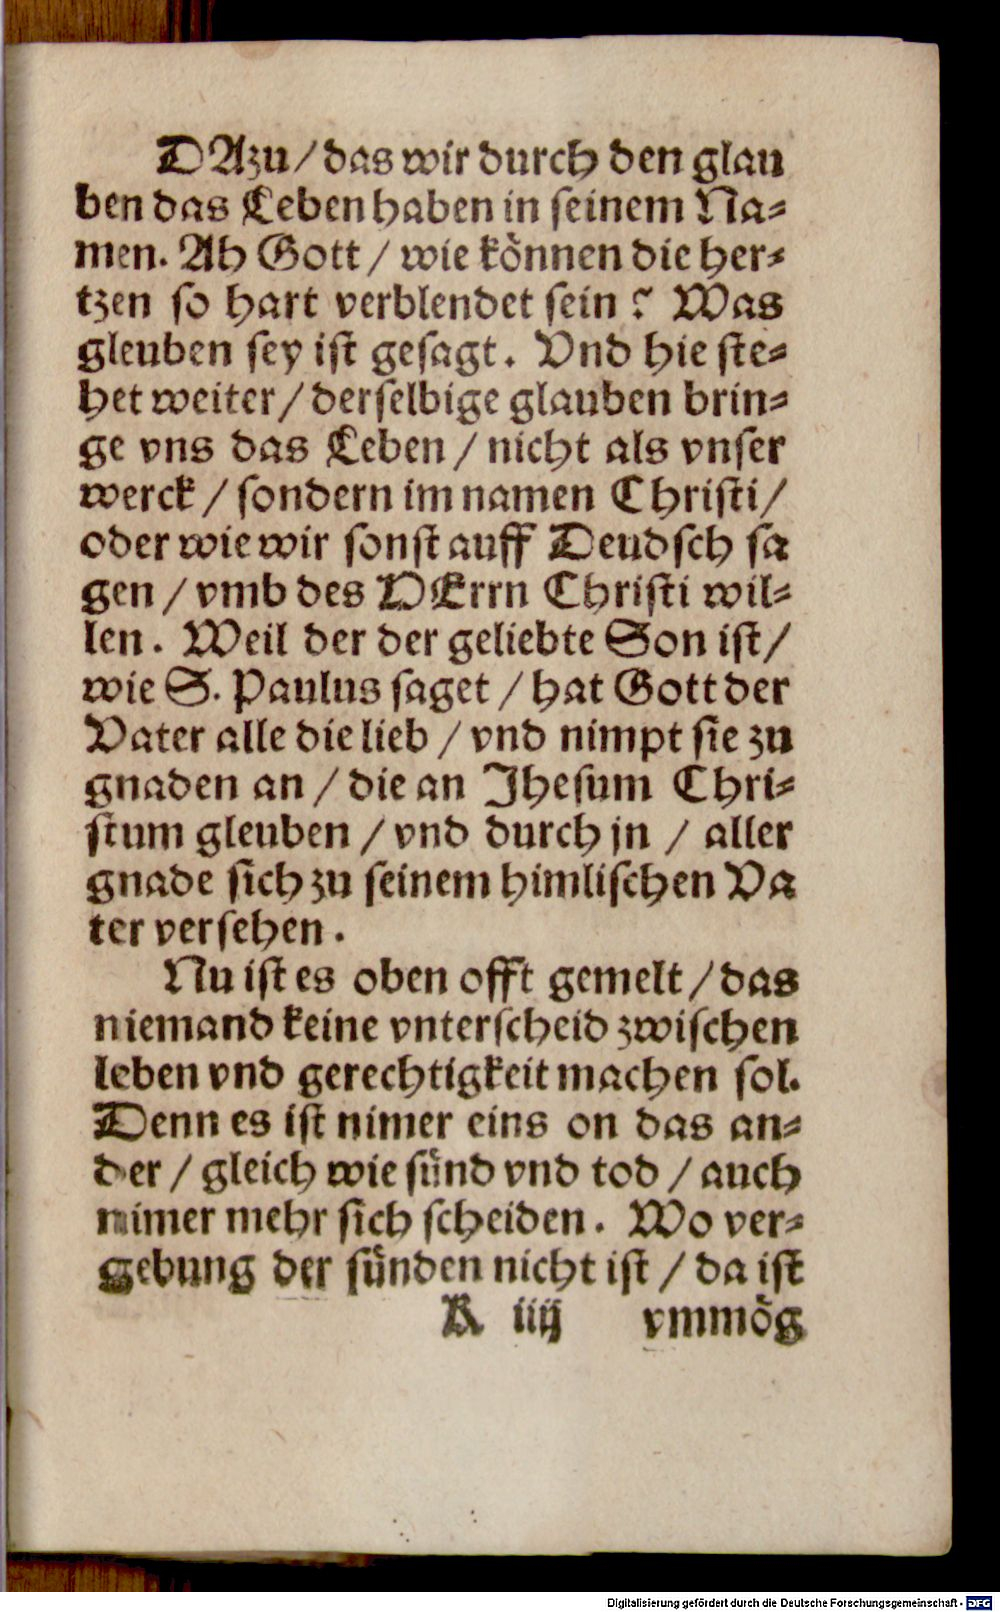 DAzu / das wir durch den glau
ben das Leben haben in seinem Na-
men. Ah Gott / wie können die her-
tzen so hart verblendet sein? Was
gleuben sey ist gesagt. Vnd hie ste-
het weiter / derselbige glauben brin-
ge vns das Leben / nicht als vnser
werck / sondern im namen Christi /
oder wie wir sonst auff Deudsch sa
gen / vmb des HErrn Christi wil-
len. Weil der der geliebte Son ist /
wie S. Paulus saget / hat Gott der
Vater alle die lieb / vnd nimpt sie zu
gnaden an / die an Jhesum Chri-
stum gleuben / vnd durch jn / aller
gnade sich zu seinem himlischen Va
ter versehen.
Nu ist es oben offt gemelt / das
niemand keine vnterscheid zwischen
leben vnd gerechtigkeit machen sol.
Denn es ist nimer eins on das an-
der / gleich wie sünd vnd tod / auch
nimer mehr sich scheiden. Wo ver-
gebung der sünden nicht ist / da ist
R iiij vmmög
Digitalisierung gefördert durch die Deutsche Forschungsgemeinschaft - DFG